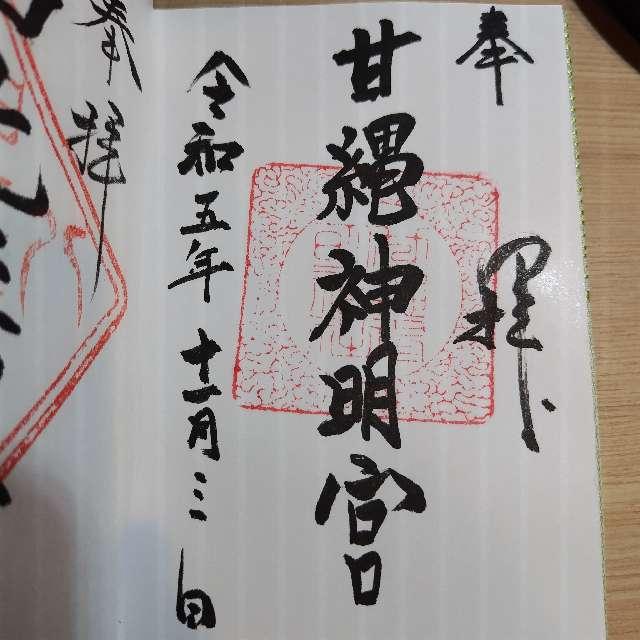 奉拝
甘縄神明宮
令和五年十一月三日
奉拝